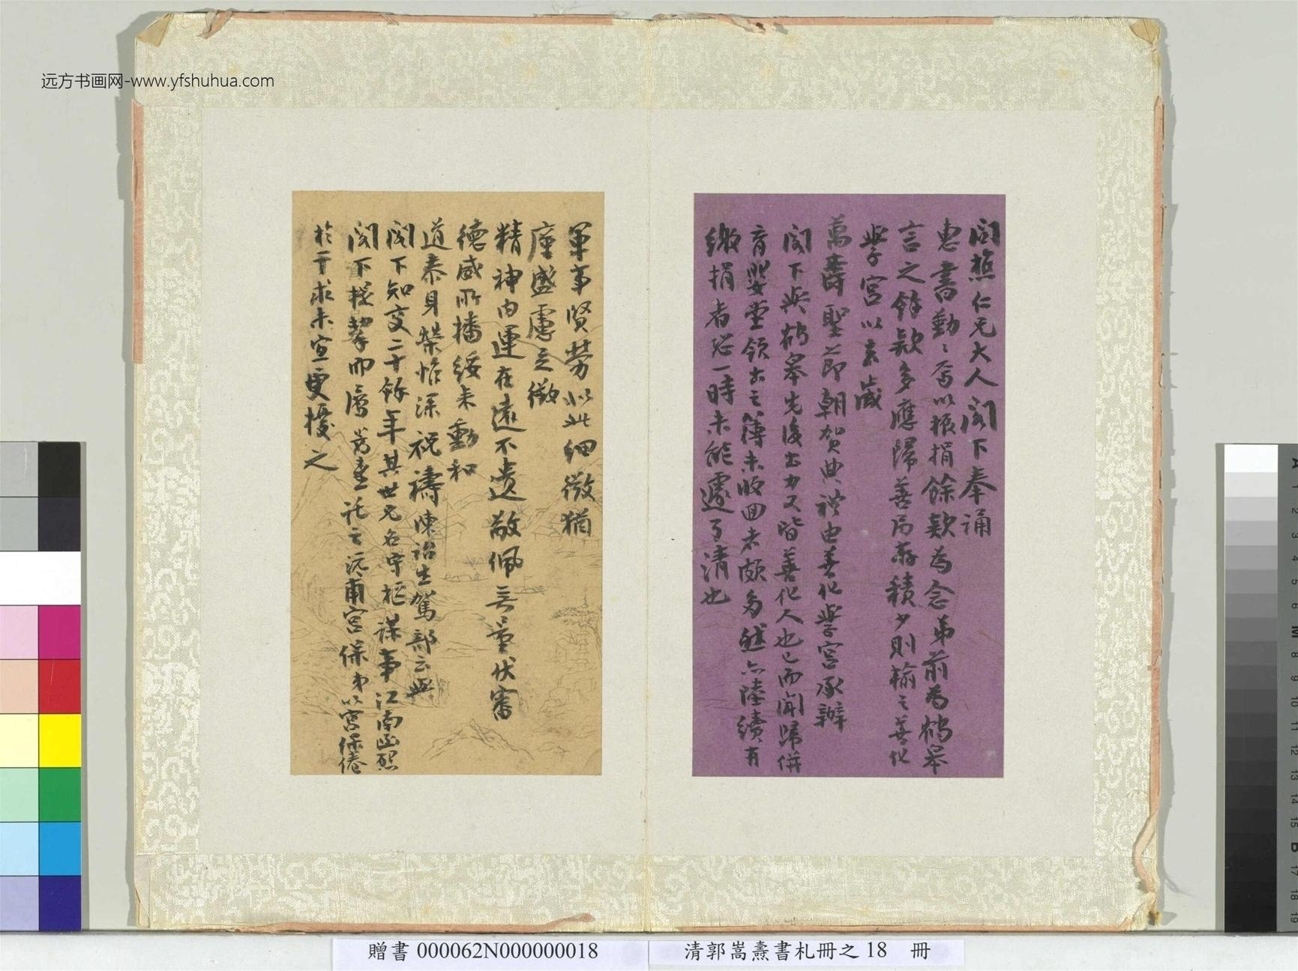 远方书画网-www.yfshuhua.com
仁兄大人閣下奉誦
惠書動動焉以振捐餘款為念弟前為鶴皋
言之餘款多應歸善局存積少則輸之善化
學宮以去歲
萬壽聖節朝賀典禮由善化學宮承辦
閣下與鶴皋先後出力又皆善化人也已而聞歸併
育嬰堂領出之簿未收回者頗多然亦陸續有
繳捐者恐一時未能遽了清也
軍事賢勞似此細微猶
廑盛慮之微
精神內運在遠不遺敬佩無量伏審
德威所播綏來動和
道泰身榮惟深祝禱陳詒生駕部云與
閣下知交二十餘年其世兄名守
謀事江南
閣下
託之沅甫宮保弟以宮保倦
於干求未宣更擾之
贈書 000062N000000018
清郭嵩燾書札冊之 18 冊